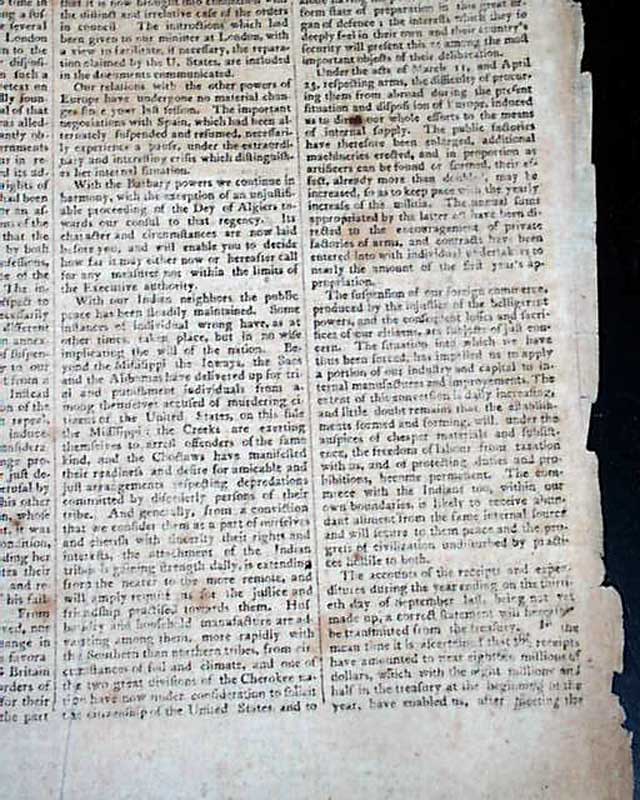 London
in such a
Instead
on of the
repeal,
induce
just de-
whose
it was
From
Britain
orders of
for their
the part
the distinct and irrelative case of the orders
in council. The instructions which had
been given to our minister at London, with
a view to facilitate, if necessary, the repara-
tion claimed by the U. States, are included
in the documents communicated.
Our relations with the other powers of
Europe have undergone no material chan-
ges since your last session. The important
negociations with Spain, which had been al-
ternately suspended and resumed, necessari-
ly experience a pause, under the extraordi-
nary and interesting crisis which distinguish-
es her internal situation.
With the Barbary powers we continue in
harmony, with the exception of an unjustifi-
able proceeding of the Dey of Algiers to-
wards our consul to that regency. Its
character and circumstances are now laid
before you, and will enable you to decide
how far it may either now or hereafter call
for any measures not within the limits of
the Executive authority.
With our Indian neighbors the public
peace has been steadily maintained. Some
instances of individual wrong have, as at
other times, taken place, but in no wise
implicating the will of the nation. Be-
yond the Missisippi the Ioways, the Sacs
and the Alibamas have delivered up for tri-
al and punishment individuals from a-
mong themselves accused of murdering ci-
tizens of the United States, on this side
the Missisippi; the Creeks are exerting
themselves to arrest offenders of the same
kind, and the Choctaws have manifested
their readiness and desire for amicable and
just arrangements respecting depredations
committed by disorderly persons of their
tribe. And generally, from a conviction
that we consider them as a part of ourselves
and cherish with sincerity their rights and
interests, the attachment of the Indian
tribes is gaining strength daily, is extending
from the nearer to the more remote, and
will amply requite us for the justice and
friendship practised towards them. Hus-
bandry and household manufacture are ad-
vancing among them, more rapidly with
the Southern than northern tribes, from cir-
cumstances of soil and climate, and one of
the two great divisions of the Cherokee na-
tion have now under consideration to solicit
the citizenship of the United States and to
form state of preparation in this great or-
gan of defence; the interests which they so
deeply feel in their own and their country's
security will present this as among the most
important objects of their deliberation.
Under the acts of March 11, and April
23, respecting arms, the difficulty of procur-
ing them from abroad during the present
situation and disposition of Europe, induced
us to direct our whole efforts to the means
of internal supply. The public factories
have therefore been enlarged, additional
machineries erected, and in proportion as
artificers can be found or formed, their ef-
fect, already more than doubled, may be
increased, so as to keep pace with the yearly
increase of the militia. The annual sums
appropriated by the latter act have been di-
rected to the encouragement of private
factories of arms, and contracts have been
entered into with individual undertakers to
nearly the amount of the first year's ap-
propriation.
The suspension of our foreign commerce,
produced by the injustice of the belligerent
powers, and the consequent losses and sacri-
fices of our citizens, are subjects of just con-
cern. The situation into which we have
thus been forced, has impelled us to apply
a portion of our industry and capital to in-
ternal manufactures and improvements. The
extent of this conversion is daily increasing,
and little doubt remains that the establish-
ments formed and forming, will, under the
auspices of cheaper materials and subsist-
ence, the freedom of labour from taxation
with us, and of protecting duties and pro-
hibitions, become permanent. The com-
merce with the Indians too, within our
own boundaries, is likely to receive abun-
dant aliment from the same internal source
and will secure to them peace and the pro-
gress of civilization undisturbed by practi-
ces hostile to both.
The accounts of the receipts and expen-
ditures during the year ending on the thirti-
eth day of September last, being not yet
made up, a correct statement will hereafter
be transmitted from the treasury. In the
mean time it is ascertained that the receipts
have amounted to near eighteen millions of
dollars, which with the eight millions and
half in the treasury at the beginning of the
year, have enabled us, after meeting the